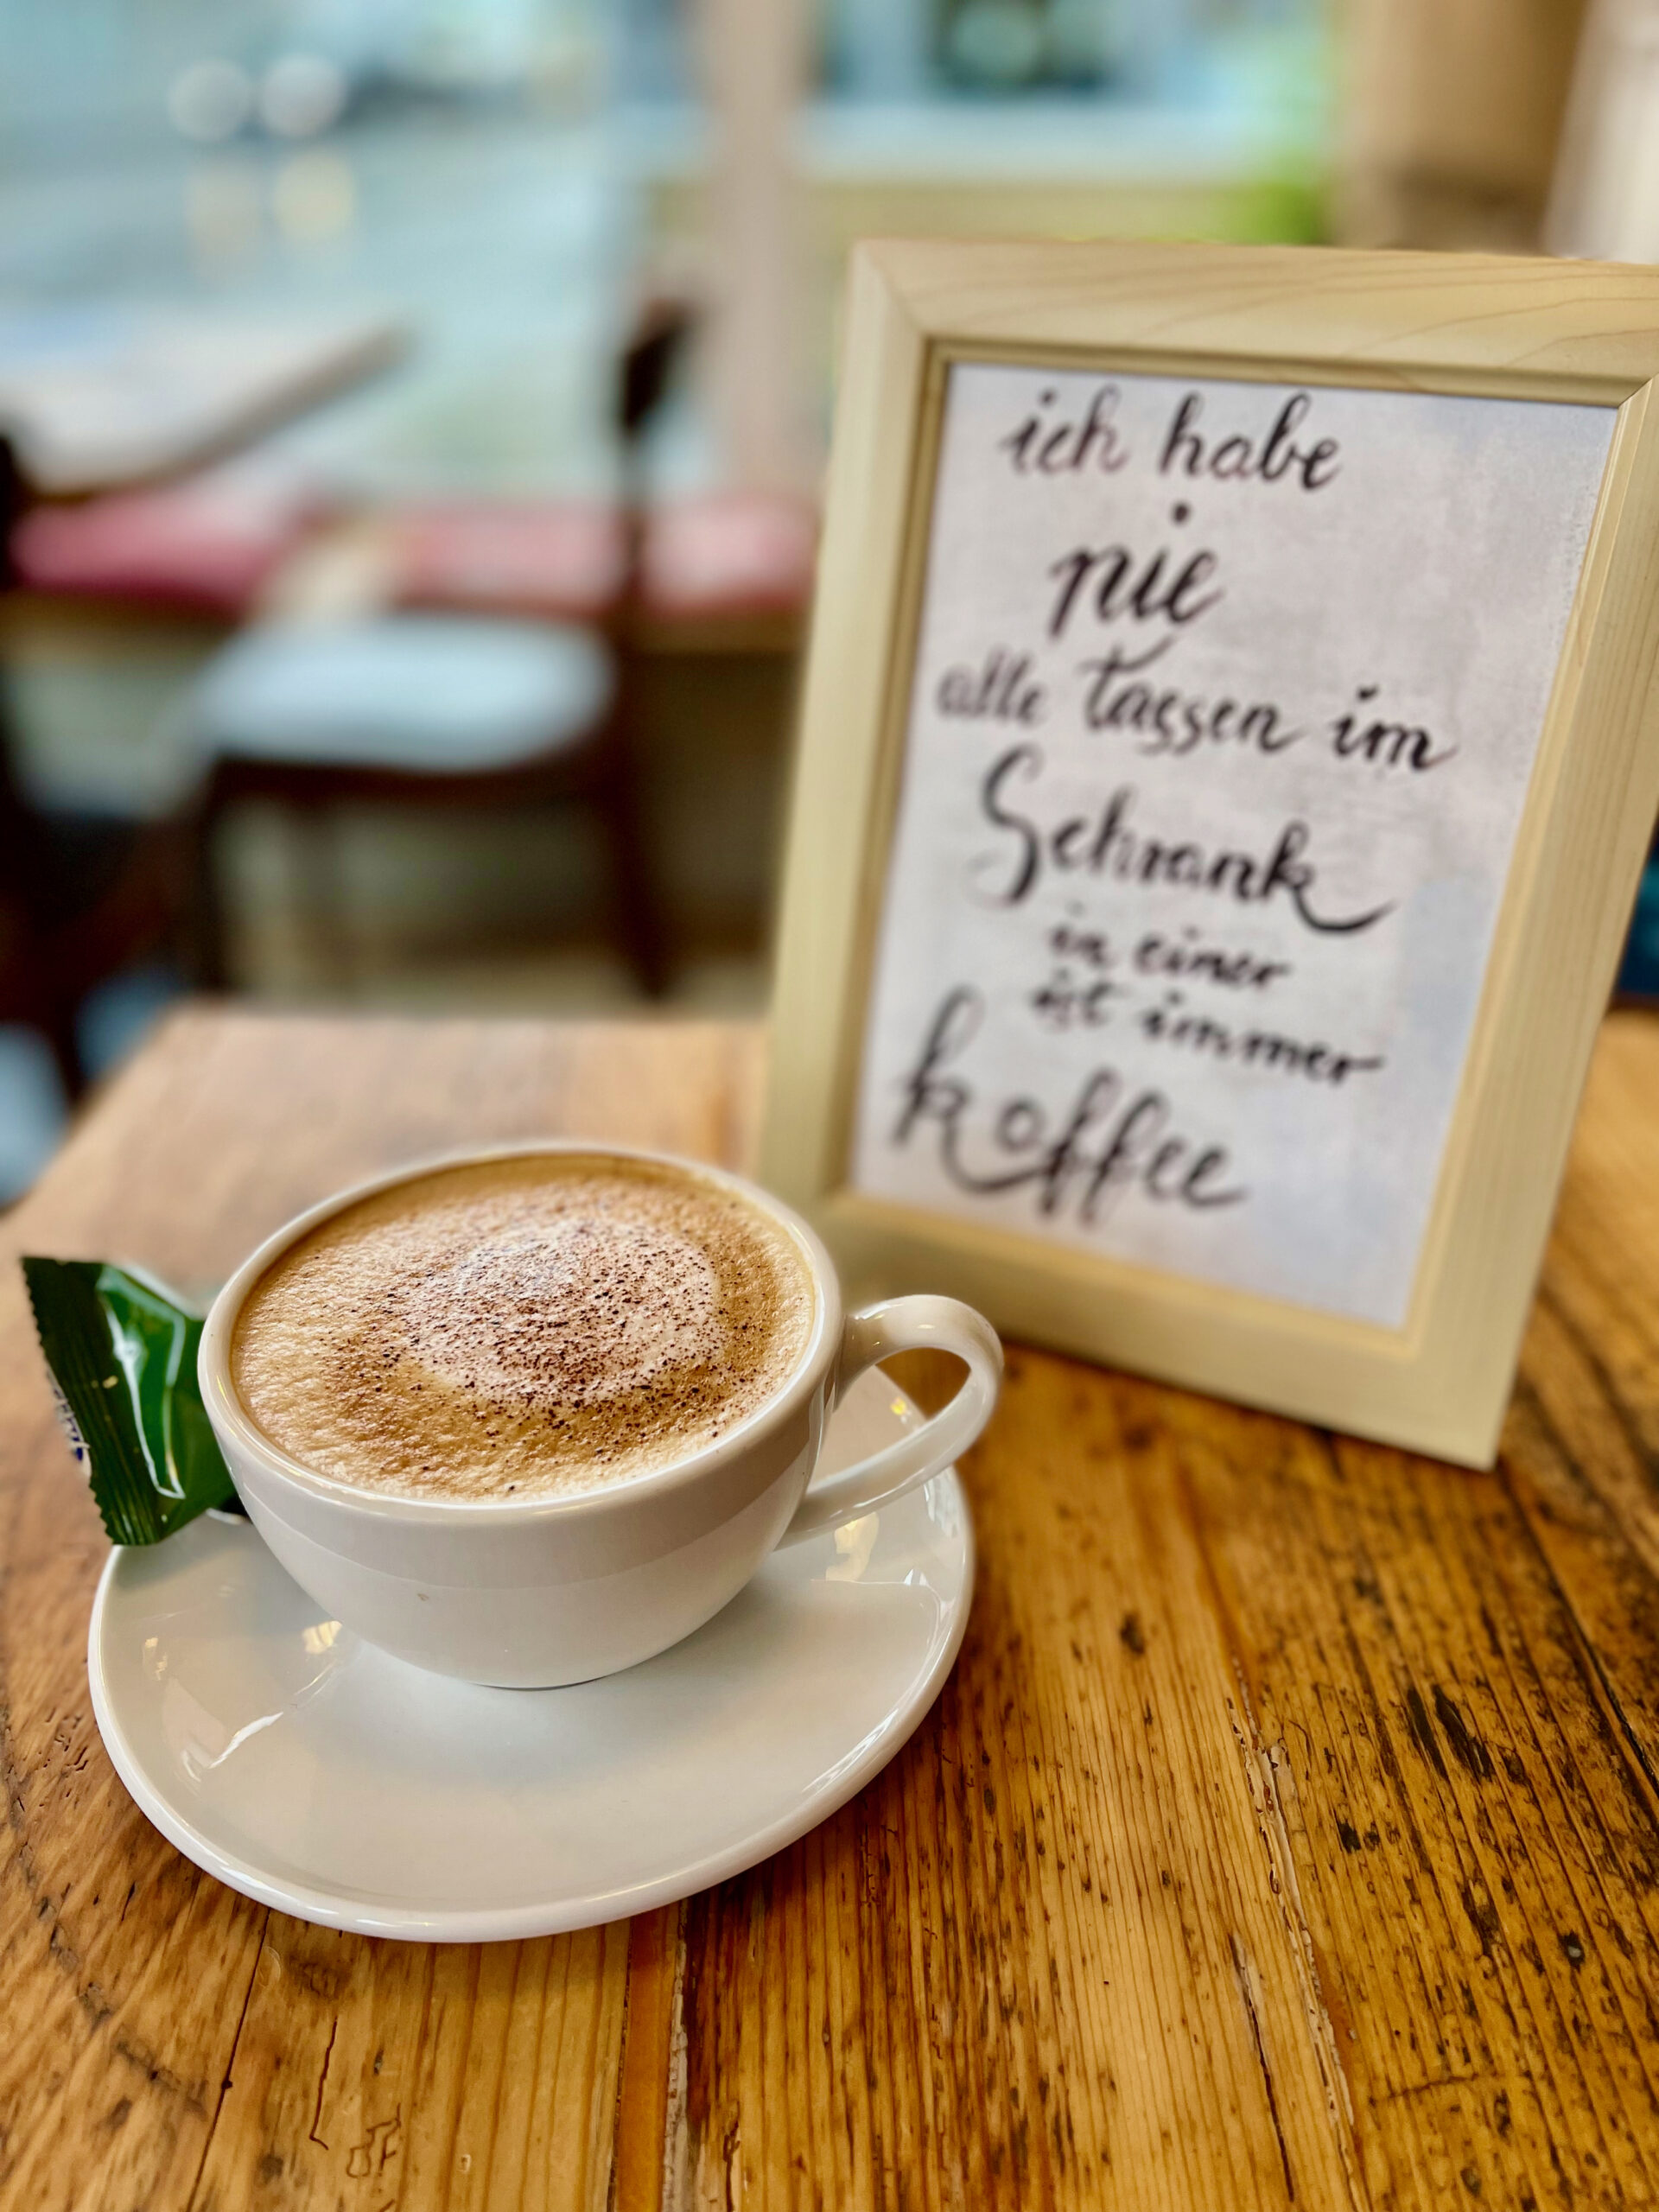 ich habe
nie
alle tassen im
Schrank
in einer
ist immer
koffee